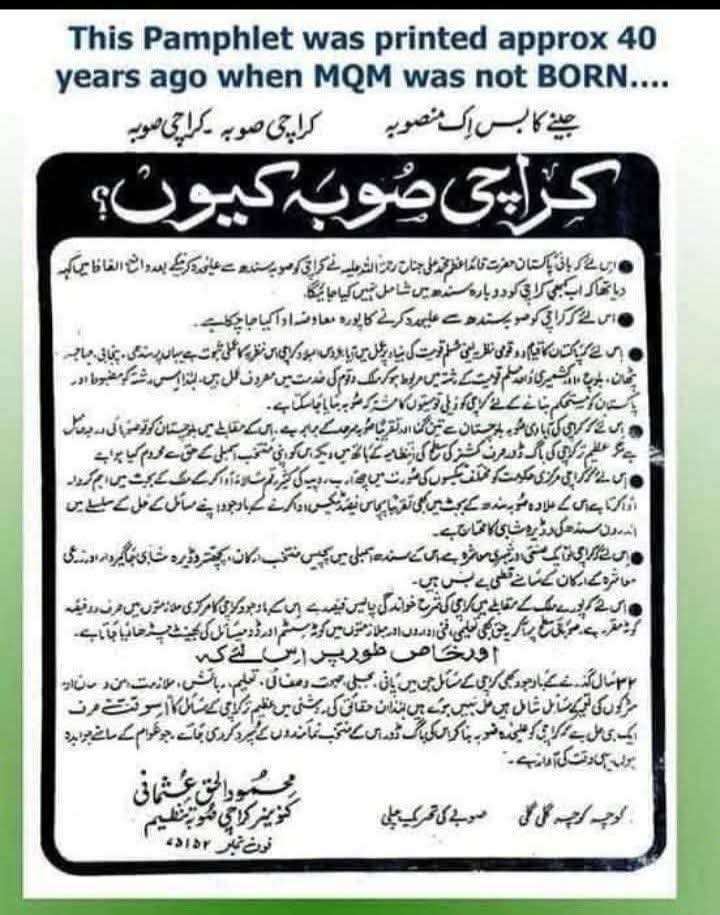 This Pamphlet was printed approx 40
years ago when MQM was not BORN....
جینے کا بس اِک منصوبہ کراچی صوبہ - کراچی صوبہ
کراچی صُوبَہ کیوں؟
● اس لئے کہ بانیٔ پاکستان حضرت قائد اعظم محمد علی جناح رحمۃ اللہ علیہ نے کراچی کو صوبہ سندھ سے علیحدہ کرنیکے بعد واضح الفاظ میں کہہ
دیا تھا کہ اب کبھی کراچی کو دوبارہ سندھ میں شامل نہیں کیا جائیگا۔
● اس لئے کہ کراچی کو صوبہ سندھ سے علیحدہ کرنے کا پورا معاوضہ ادا کیا جا چکا ہے۔
● اس لئے کہ پاکستان کا قیام دو قومی نظریہ یعنی مسلم قومیت کی بنیاد پر عمل میں آیا اور کراچی اس نظریہ کا عملی ثبوت ہے یہاں پر سندھی، پنجابی، مہاجر
پٹھان، بلوچ اور کشمیری واحد مسلم قومیت کے رشتہ میں مربوط ہو کر ملک و قوم کی خدمت میں مصروف عمل ہیں، لہٰذا اس رشتہ کو مضبوط اور
پاکستان کو مستحکم بنانے کے لئے کراچی کو صوبہ بنایا جا سکتا ہے۔
● اس لئے کہ کراچی کی آبادی صوبہ بلوچستان سے تین گنا اور تقریباً صوبہ سرحد کے برابر ہے، اس کے مقابلے میں بلوچستان کو تو صوبائی درجہ حاصل
ہے مگر عظیم تر کراچی کی باگ ڈور صرف کمشنر کی سطح کی انتظامیہ کے ہاتھ میں دیکر اس کو اپنی منتخب اسمبلی کے حق سے محروم کیا ہوا ہے
● اس لئے کہ کراچی مرکزی حکومت کو مختلف ٹیکسوں کی صورت میں ارب روپیہ کی کثیر رقم سالانہ ادا کر کے ملک کے بجٹ میں اہم کردار
ادا کرتا ہے اس کے علاوہ صوبہ سندھ کے بجٹ میں بھی تقریباً پچاس فیصد ٹیکس ادا کرنے کے باوجود اپنے مسائل کے حل کے سلسلے میں
اندرون سندھ کی وڈیرہ شاہی کا محتاج ہے۔
● اس لئے کہ کراچی تو ایک صنعتی و شہری معاشرہ ہے اس کے سندھ اسمبلی میں پچیس منتخب ارکان، پچھتر وڈیرہ شاہی جاگیردار اور زرعی
معاشرہ کے ارکان کے سامنے قطعی بے بس ہیں۔
● اس لئے کہ پورے ملک کے مقابلے میں کراچی کی شرح خواندگی چالیس فیصد ہے اس کے باوجود کراچی کا مرکزی ملازمتوں میں صرف دو فیصد
کوٹہ مقرر ہے، صوبائی سطح پر آ کر یہ حق بھی تعلیمی، فنی اداروں اور ملازمتوں میں کوٹہ سسٹم اور ڈومیسائل کی بھینٹ چڑھا دیا جاتا ہے۔
اور خاص طور پر اس لئے کہ
۳۲ سال گذرنے کے باوجود بھی کراچی کے مسائل جن میں پانی، بجلی، صحت و صفائی، تعلیم، رہائش، ملازمت، امن و امان اور
سڑکوں کی تعمیر کے مسائل شامل ہیں حل نہیں ہوئے ہیں لہٰذا ان حقائق کی روشنی میں عظیم تر کراچی کے مسائل کا اس وقت صرف
ایک ہی حل ہے کہ کراچی کو علیحدہ صوبہ بنا کر اس کی باگ ڈور اس کے منتخب نمائندوں کے سپرد کر دی جائے، جو عوام کے سامنے جوابدہ
ہوں، یہی وقت کی آواز ہے۔
محمود الحق عثمانی
کنوینر کراچی صوبہ تنظیم
فون نمبر ۷۵۱۵۲
کوچہ کوچہ گلی گلی صوبے کی تحریک چلی